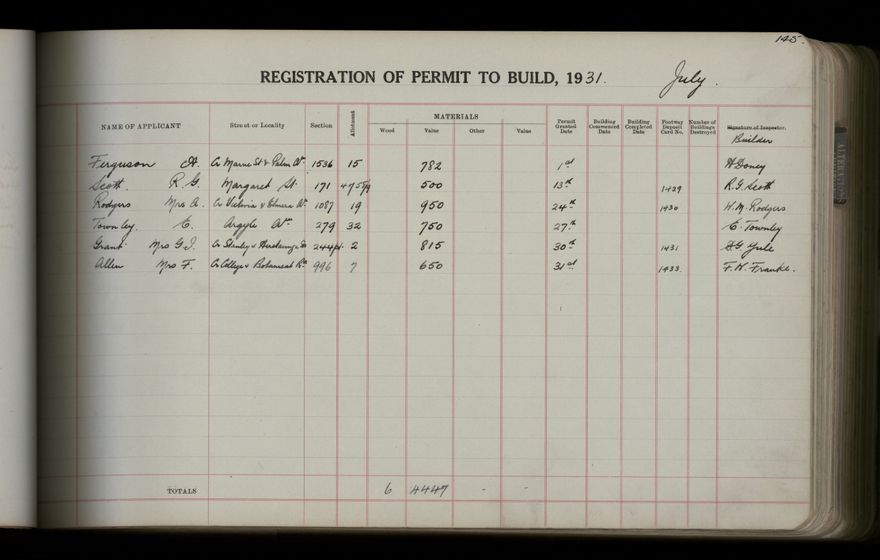 145.
REGISTRATION OF PERMIT TO BUILD, 1931. July.
NAME OF APPLICANT Street or Locality Section Allotment MATERIALS Wood Value Other Value Permit Granted Date Building Commenced Date Building Completed Date Footway Deposit Card No. Number of Buildings Destroyed Signature of Inspector. Builder
Ferguson A. Cr Marne St & Palm Av. 1536 15 782 1st H Doney
Scott. R. G. Margaret St. 171 500 13th 1429 R. G. Scott
Rodgers Mrs A. Cr Victoria & Av. 1087 19 950 24th 1430 W. M. Rodgers
Townley. E. Argyle Av. 279 32 750 27th E. Townley
Grant Mrs G. J. Cr Stanley & 2 815 30th 1431 Yule
Allen Mrs F. Cr College & Botanical Rd 996 7 650 31st 1433 F. W. Franke.
TOTALS 6 4447 - -
ALTERATION